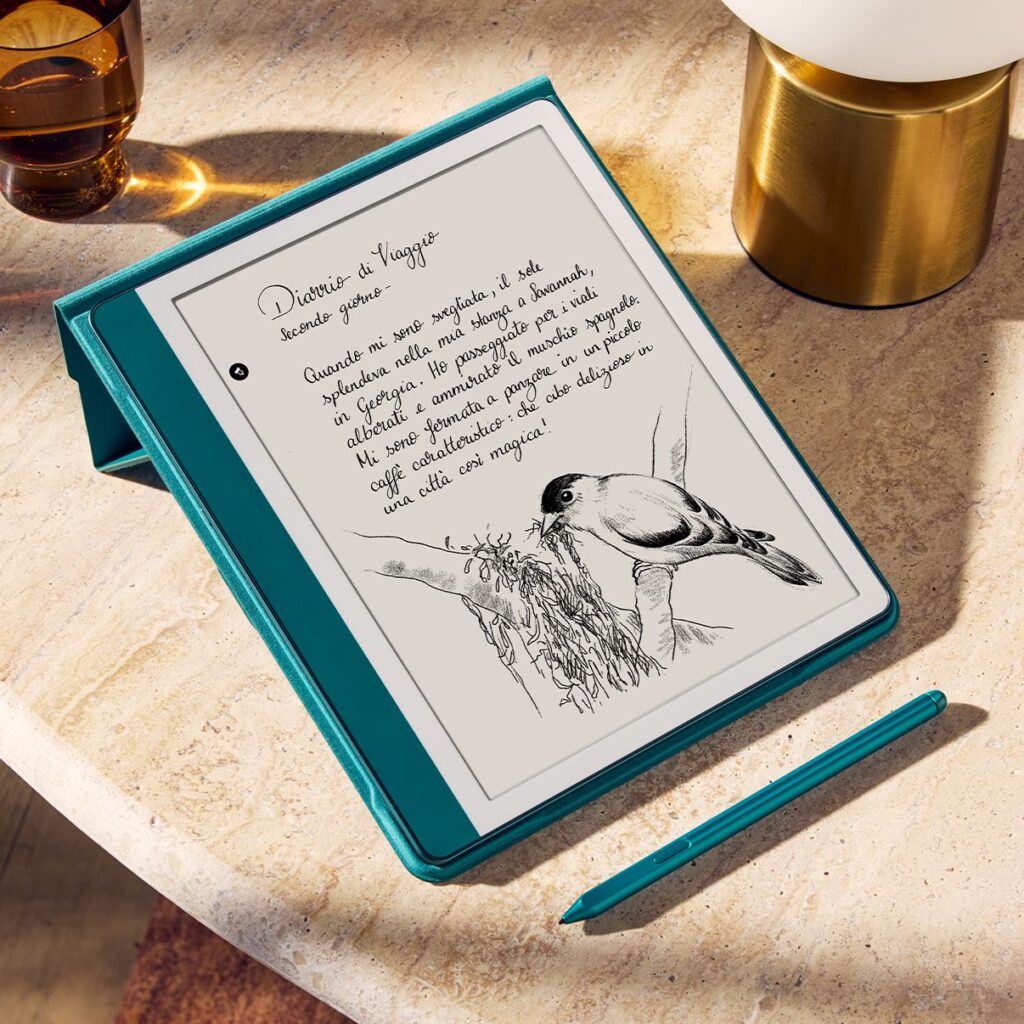 Diario di Viaggio
secondo giorno -
Quando mi sono svegliata, il sole
splendeva nella mia stanza a Savannah,
in Georgia. Ho passeggiato per i viali
alberati e ammirato il muschio spagnolo.
Mi sono fermata a panzare in un piccolo
caffè caratteristico: che cibo delizioso in
una città così magica!